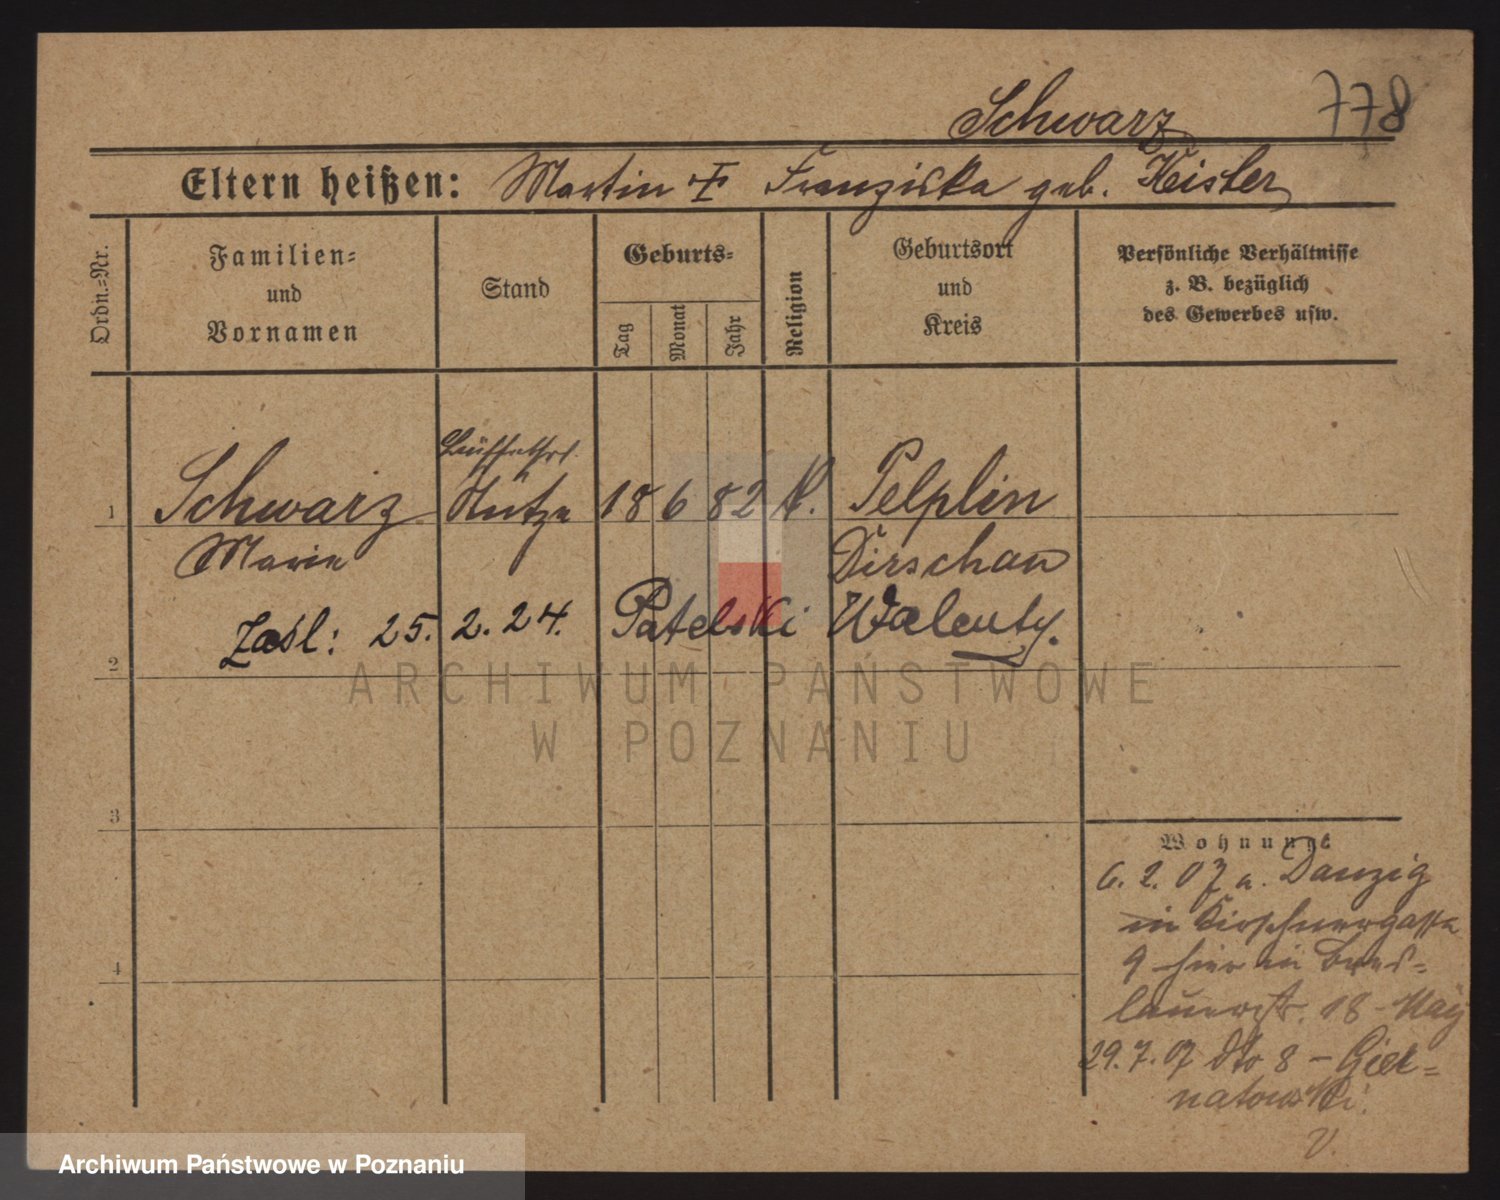 Schwarz 778
Eltern heißen: Martin Franziska geb. Keister
Ordn.-Nr.
Familien-
und
Vornamen
Stand
Geburts-
Tag
Monat
Jahr
Religion
Geburtsort
und
Kreis
Persönliche Verhältnisse
z. B. bezüglich
des Gewerbes usw.
1 Schwarz Stütze 18 6 82 K. Pelplin
Marie Dirschau
Zaśl: 25. 2. 24. Patelski Walenty.
2
ARCHIWUM PAŃSTWOWE
W POZNANIU
3
Wohnung
6. 2. 07 a. Danzig
in
9 hier in Bres-
lauerstr. 18 - May
4
29. 7. 07 dto 8 -
natowski.
V.
Archiwum Państwowe w Poznaniu